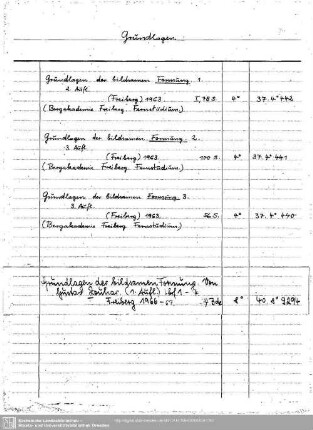 Grundlagen.
Grundlagen der bildsamen Formung 1.
2. Aufl.
(Freiberg) 1963. I, 98 S. 4° 37. 4° 442
(Bergakademie Freiberg. Fernstudium.)
Grundlagen der bildsamen Formung 2.
3. Aufl.
(Freiberg) 1963 100 S. 4° 37. 4° 441
(Bergakademie Freiberg. Fernstudium.)
Grundlagen der bildsamen Formung 3.
3. Aufl.
(Freiberg) 1963. 56 S. 4° 37. 4° 440
(Bergakademie Freiberg. Fernstudium)
Grundlagen der bildsamen Formung. Von
Gustav Zouhar. (1. Aufl.)
Freiberg 1966 4° 40. 4° 9294